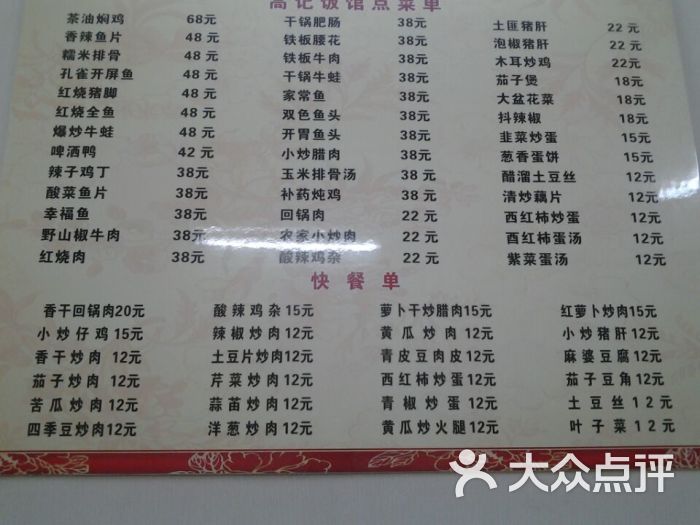 高记饭馆点菜单
茶油焖鸡 68元
香辣鱼片 48元
糯米排骨 48元
孔雀开屏鱼 48元
红烧猪脚 48元
红烧全鱼 48元
爆炒牛蛙 48元
啤酒鸭 42元
辣子鸡丁 38元
酸菜鱼片 38元
幸福鱼 38元
野山椒牛肉 38元
红烧肉 38元
干锅肥肠 38元
铁板腰花 38元
铁板牛肉 38元
干锅牛蛙 38元
家常鱼 38元
双色鱼头 38元
开胃鱼头 38元
小炒腊肉 38元
玉米排骨汤 38元
补药炖鸡 38元
回锅肉 22元
农家小炒肉 22元
酸辣鸡杂 22元
土匪猪肝 22元
泡椒猪肝 22元
木耳炒鸡 22元
茄子煲 18元
大盆花菜 18元
抖辣椒 18元
韭菜炒蛋 15元
葱香蛋饼 15元
醋溜土豆丝 12元
清炒藕片 12元
西红柿炒蛋 12元
酉红柿蛋汤 12元
紫菜蛋汤 12元
快餐单
香干回锅肉20元
小炒仔鸡 15元
香干炒肉 12元
茄子炒肉 12元
苦瓜炒肉 12元
四季豆炒肉12元
酸辣鸡杂 15元
辣椒炒肉 12元
土豆片炒肉12元
芹菜炒肉 12元
蒜苗炒肉 12元
洋葱炒肉 12元
萝卜干炒腊肉15元
黄瓜炒肉 12元
青皮豆肉皮 12元
西红柿炒蛋 12元
青椒炒蛋 12元
黄瓜炒火腿 12元
红萝卜炒肉15元
小炒猪肝 12元
麻婆豆腐 12元
茄子豆角 12元
土豆丝 12元
叶子菜 12元
大众点评